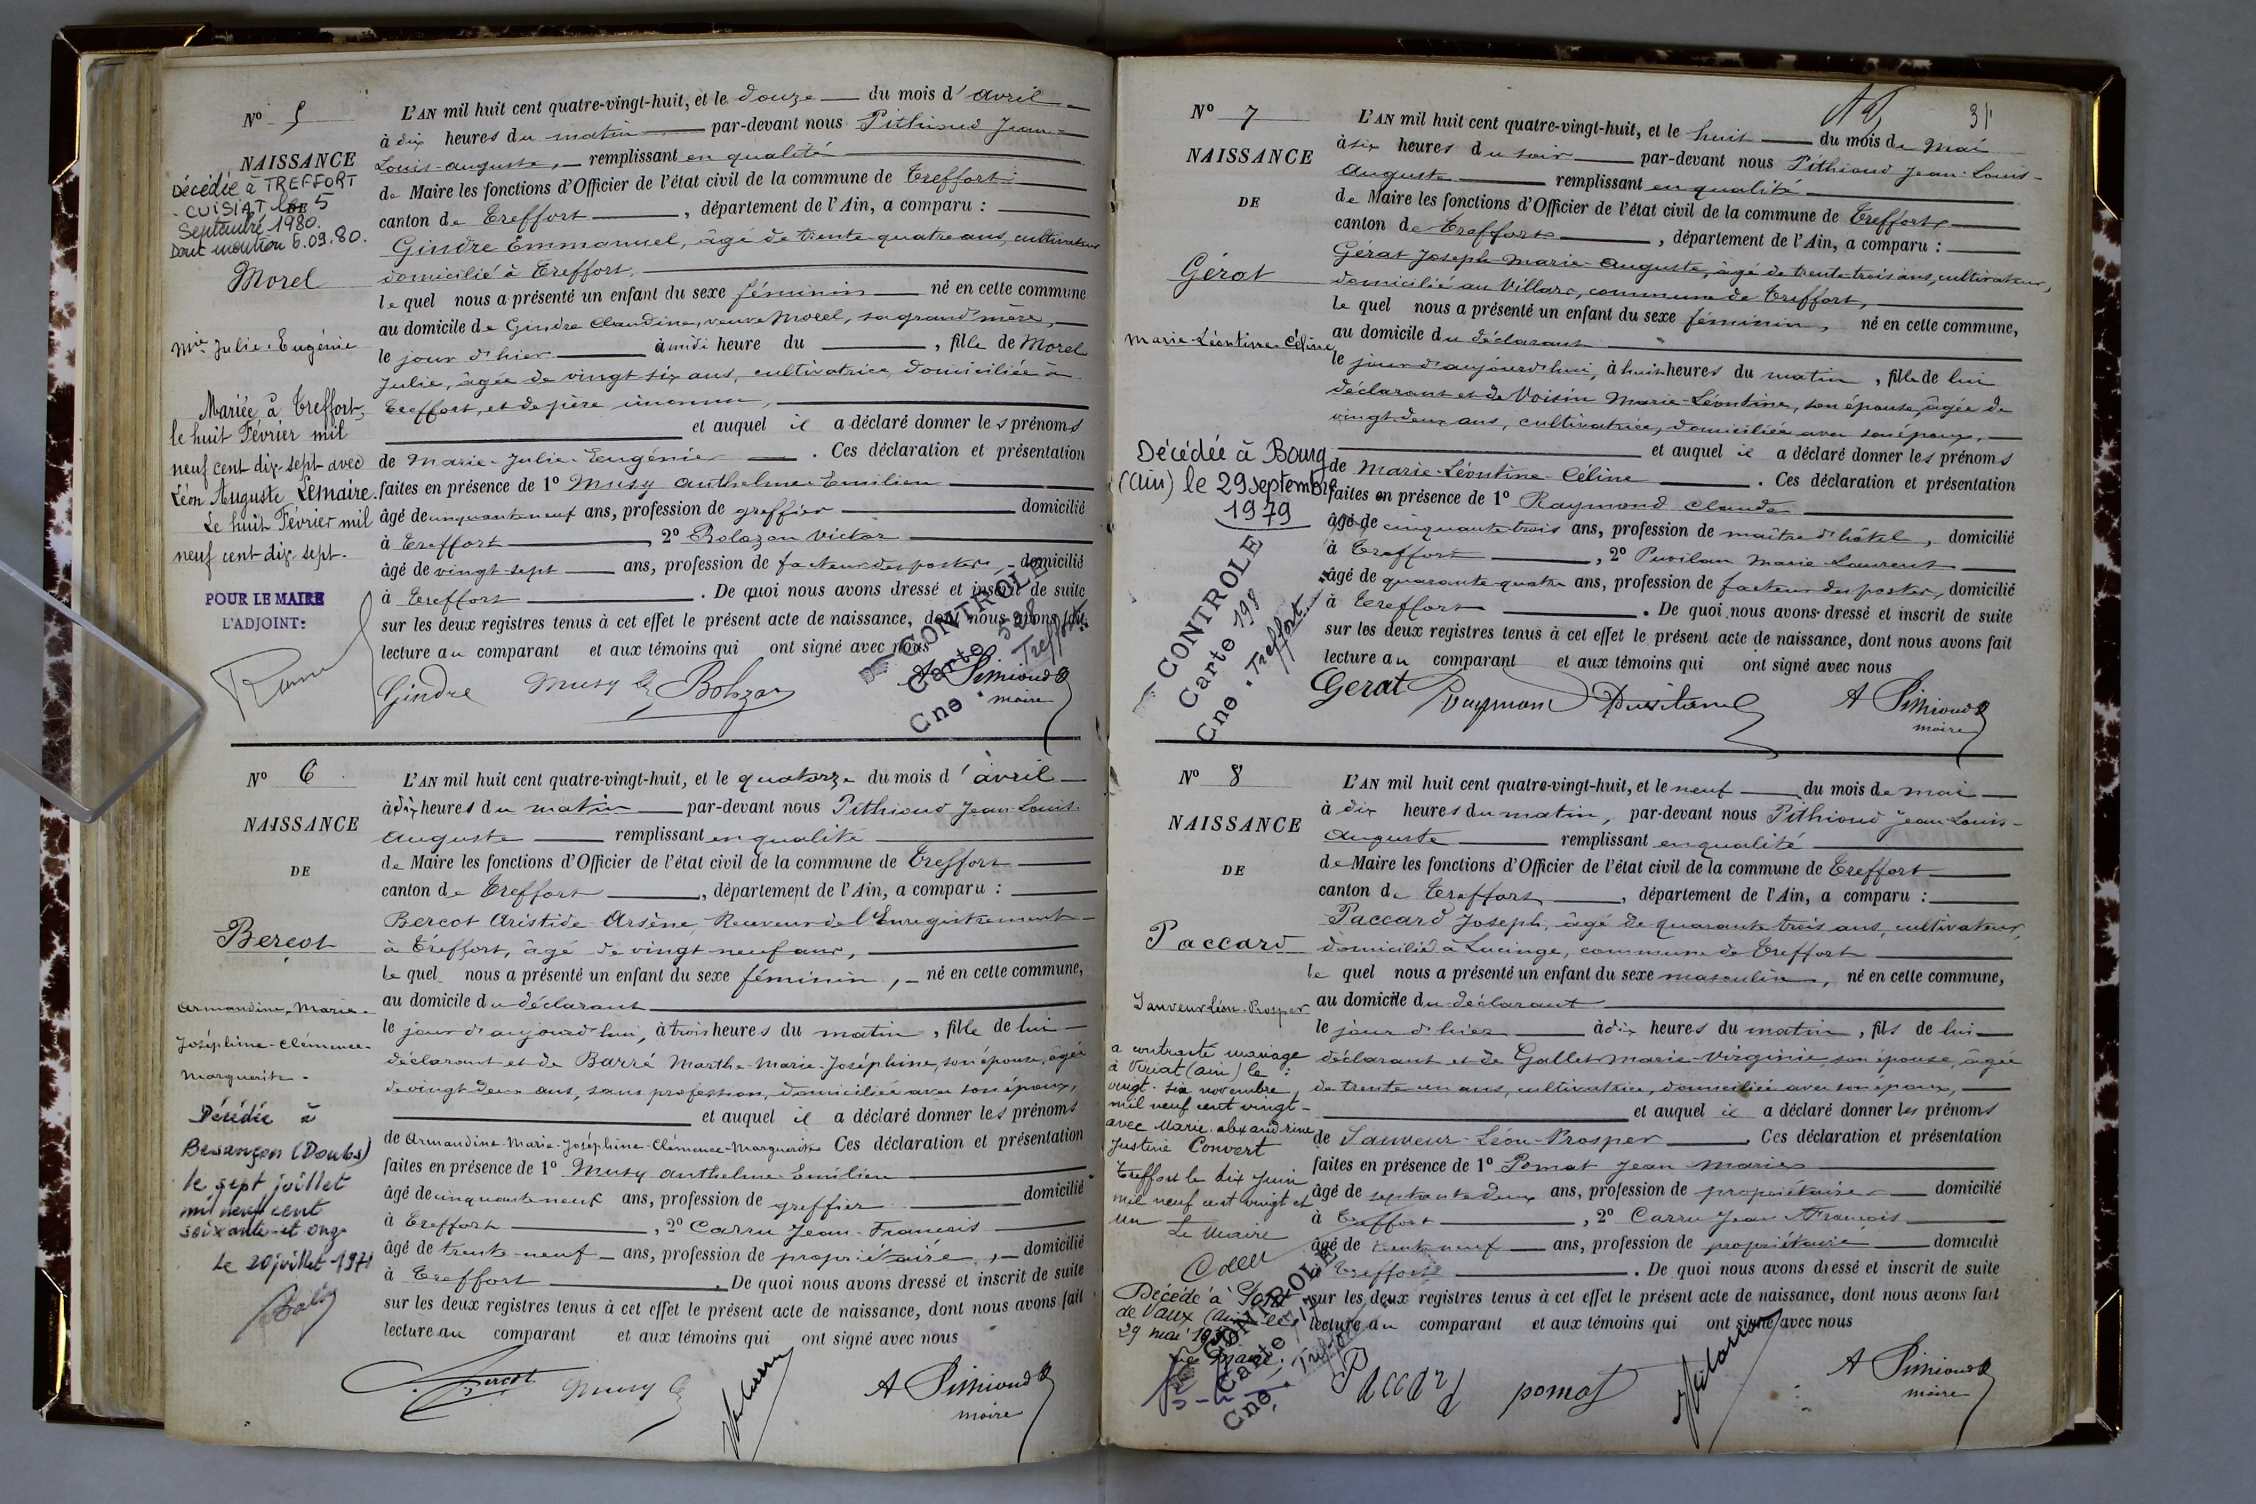 N° 5
NAISSANCE
Décédée à TREFFORT
- CUISIAT le 5
Septembre 1980.
Dont mention 6.09.80.
Morel
Mie Julie-Eugénie
Mariée à Treffort,
le huit Février mil
neuf cent dix-sept avec
Léon Auguste Lemaire.
Le huit Février mil
neuf cent dix-sept.
POUR LE MAIRE
L'ADJOINT:
L'AN mil huit cent quatre-vingt-huit, et le douze du mois d'avril
à dix heures du matin par-devant nous Pithioud Jean-
Louis-Auguste, remplissant en qualité
de Maire les fonctions d'Officier de l'état civil de la commune de Treffort
canton de Treffort, département de l'Ain, a comparu :
Gindre Emmanuel, âgé de trente-quatre ans, cultivateur
domicilié à Treffort,
lequel nous a présenté un enfant du sexe féminin né en cette commune
au domicile de Gindre Claudine, veuve Morel, sa grand'mère,
le jour d'hier à midi heure du , fille de Morel
Julie, âgée de vingt-six ans, cultivatrice, domiciliée à
Treffort, et de père inconnu,
et auquel il a déclaré donner les prénoms
de Marie-Julie-Eugénie . Ces déclaration et présentation
faites en présence de 1° Musy Anthelme-Emilien
âgé de cinquante-neuf ans, profession de greffier domicilié
à Treffort , 2° Bolozon Victor
âgé de vingt-sept ans, profession de facteur des postes, domicilié
à Treffort . De quoi nous avons dressé et inscrit de suite
sur les deux registres tenus à cet effet le présent acte de naissance, dont nous avons fait
lecture au comparant et aux témoins qui ont signé avec nous
CONTROLE
Carte 528
Cne. Treffort
Gindre Musy E Bolozon A Pithioud
maire
N° 6
NAISSANCE
DE
Bercot
Armandine-Marie-
Joséphine-Clémence-
Marguerite.
Décédée à
Besançon (Doubs)
le sept juillet
mil neuf cent
soixante et onze
Le 20 juillet 1971
L'AN mil huit cent quatre-vingt-huit, et le quatorze du mois d'avril
à dix heures du matin par-devant nous Pithioud Jean-Louis-
Auguste remplissant en qualité
de Maire les fonctions d'Officier de l'état civil de la commune de Treffort
canton de Treffort , département de l'Ain, a comparu :
Bercot Aristide-Arsène, Receveur de l'Enregistrement
à Treffort, âgé de vingt-neuf ans,
lequel nous a présenté un enfant du sexe féminin, né en cette commune,
au domicile du déclarant
le jour d'aujourd'hui, à trois heures du matin, fille de lui
déclarant et de Barré Marthe-Marie-Joséphine, son épouse, âgée
de vingt-deux ans, sans profession, domiciliée avec son époux,
et auquel il a déclaré donner les prénoms
de Armandine-Marie-Joséphine-Clémence-Marguerite Ces déclaration et présentation
faites en présence de 1° Musy Anthelme-Emilien
âgé de cinquante-neuf ans, profession de greffier domicilié
à Treffort , 2° Carru Jean-Francois
âgé de trente-neuf ans, profession de propriétaire, domicilié
à Treffort . De quoi nous avons dressé et inscrit de suite
sur les deux registres tenus à cet effet le présent acte de naissance, dont nous avons fait
lecture au comparant et aux témoins qui ont signé avec nous
Bercot Musy E A Pithioud
maire
31
N° 7
NAISSANCE
DE
Gérat
Marie-Léontine-Céline
Décédée à Bourg
(Ain) le 29 septembre
1979
CONTROLE
Carte 198
Cne. Treffort
L'AN mil huit cent quatre-vingt-huit, et le huit du mois de Mai
à six heures du soir par-devant nous Pithioud Jean-Louis-
Auguste remplissant en qualité
de Maire les fonctions d'Officier de l'état civil de la commune de Treffort
canton de Treffort , département de l'Ain, a comparu :
Gérat Joseph-Marie-Auguste, âgé de trente-trois ans, cultivateur,
domicilié au Villard, commune de Treffort,
lequel nous a présenté un enfant du sexe féminin, né en cette commune,
au domicile du déclarant
le jour d'aujourd'hui, à huit heures du matin, fille de lui
déclarant et de Voisin Marie-Léontine, son épouse, âgée de
vingt-deux ans, cultivatrice, domiciliée avec son époux,
et auquel il a déclaré donner les prénoms
de Marie-Léontine-Céline . Ces déclaration et présentation
faites en présence de 1° Raymond Claude
âgé de cinquante-trois ans, profession de maître d'hôtel, domicilié
à Treffort , 2° Puvilan Marie-Laurent
âgé de quarante-quatre ans, profession de facteur des postes, domicilié
à Treffort . De quoi nous avons dressé et inscrit de suite
sur les deux registres tenus à cet effet le présent acte de naissance, dont nous avons fait
lecture au comparant et aux témoins qui ont signé avec nous
Gerat Raymond A Pithioud
maire
N° 8
NAISSANCE
DE
Paccard
Sauveur-Léon-Prosper
a contracté mariage
à Viriat (Ain) le
vingt-six novembre
mil neuf cent vingt-
avec Marie-Alexandrine
Justine Convert
Treffort le dix juin
mil neuf cent vingt et
un Le Maire
Décédé à
de Vaux (Ain) le
29 mai
Le Maire,
CONTROLE
Carte
Cne. Treffort
L'AN mil huit cent quatre-vingt-huit, et le neuf du mois de mai
à dix heures du matin, par-devant nous Pithioud Jean-Louis-
Auguste remplissant en qualité
de Maire les fonctions d'Officier de l'état civil de la commune de Treffort
canton de Treffort , département de l'Ain, a comparu :
Paccard Joseph, âgé de quarante-trois ans, cultivateur,
domicilié à Lucinge, commune de Treffort
lequel nous a présenté un enfant du sexe masculin, né en cette commune,
au domicile du déclarant
le jour d'hier à dix heures du matin, fils de lui
déclarant et de Gallet Marie-Virginie, son épouse, âgée
de trente-un ans, cultivatrice, domiciliée avec son époux,
et auquel il a déclaré donner les prénoms
de Sauveur-Léon-Prosper . Ces déclaration et présentation
faites en présence de 1° Pomat Jean-Marie
âgé de septante-deux ans, profession de propriétaire domicilié
à Treffort , 2° Carru Jean-François
âgé de trente-neuf ans, profession de propriétaire domicilié
à Treffort . De quoi nous avons dressé et inscrit de suite
sur les deux registres tenus à cet effet le présent acte de naissance, dont nous avons fait
lecture au comparant et aux témoins qui ont signé avec nous
Paccard pomat A Pithioud
maire